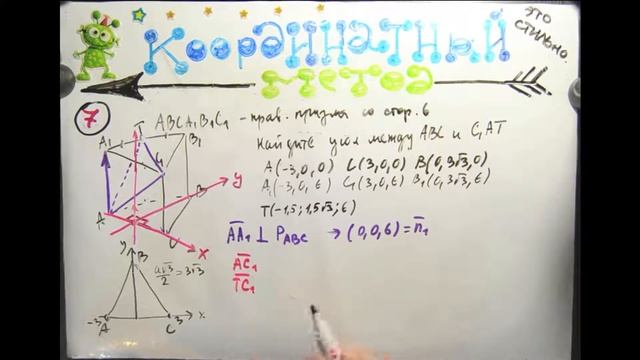 Координатный
метод
ЭТО
СТИЛЬНО.
7
ABCA₁B₁C₁ - прав. призма со стор. 6
Найдите угол между ABC и C₁AT
A(-3,0,0) C(3,0,0) B(0,3√3,0)
A₁(-3,0,6) C₁(3,0,6) B₁(0,3√3,6)
T(-1,5; 1,5√3; 6)
AA₁ ⊥ P_ABC → (0,0,6) = n̄₁
AC₁
TC₁
A₁ T B₁
C₁
y
A B
C x
y
B
a√3/2 = 3√3
-3 A C 3 x